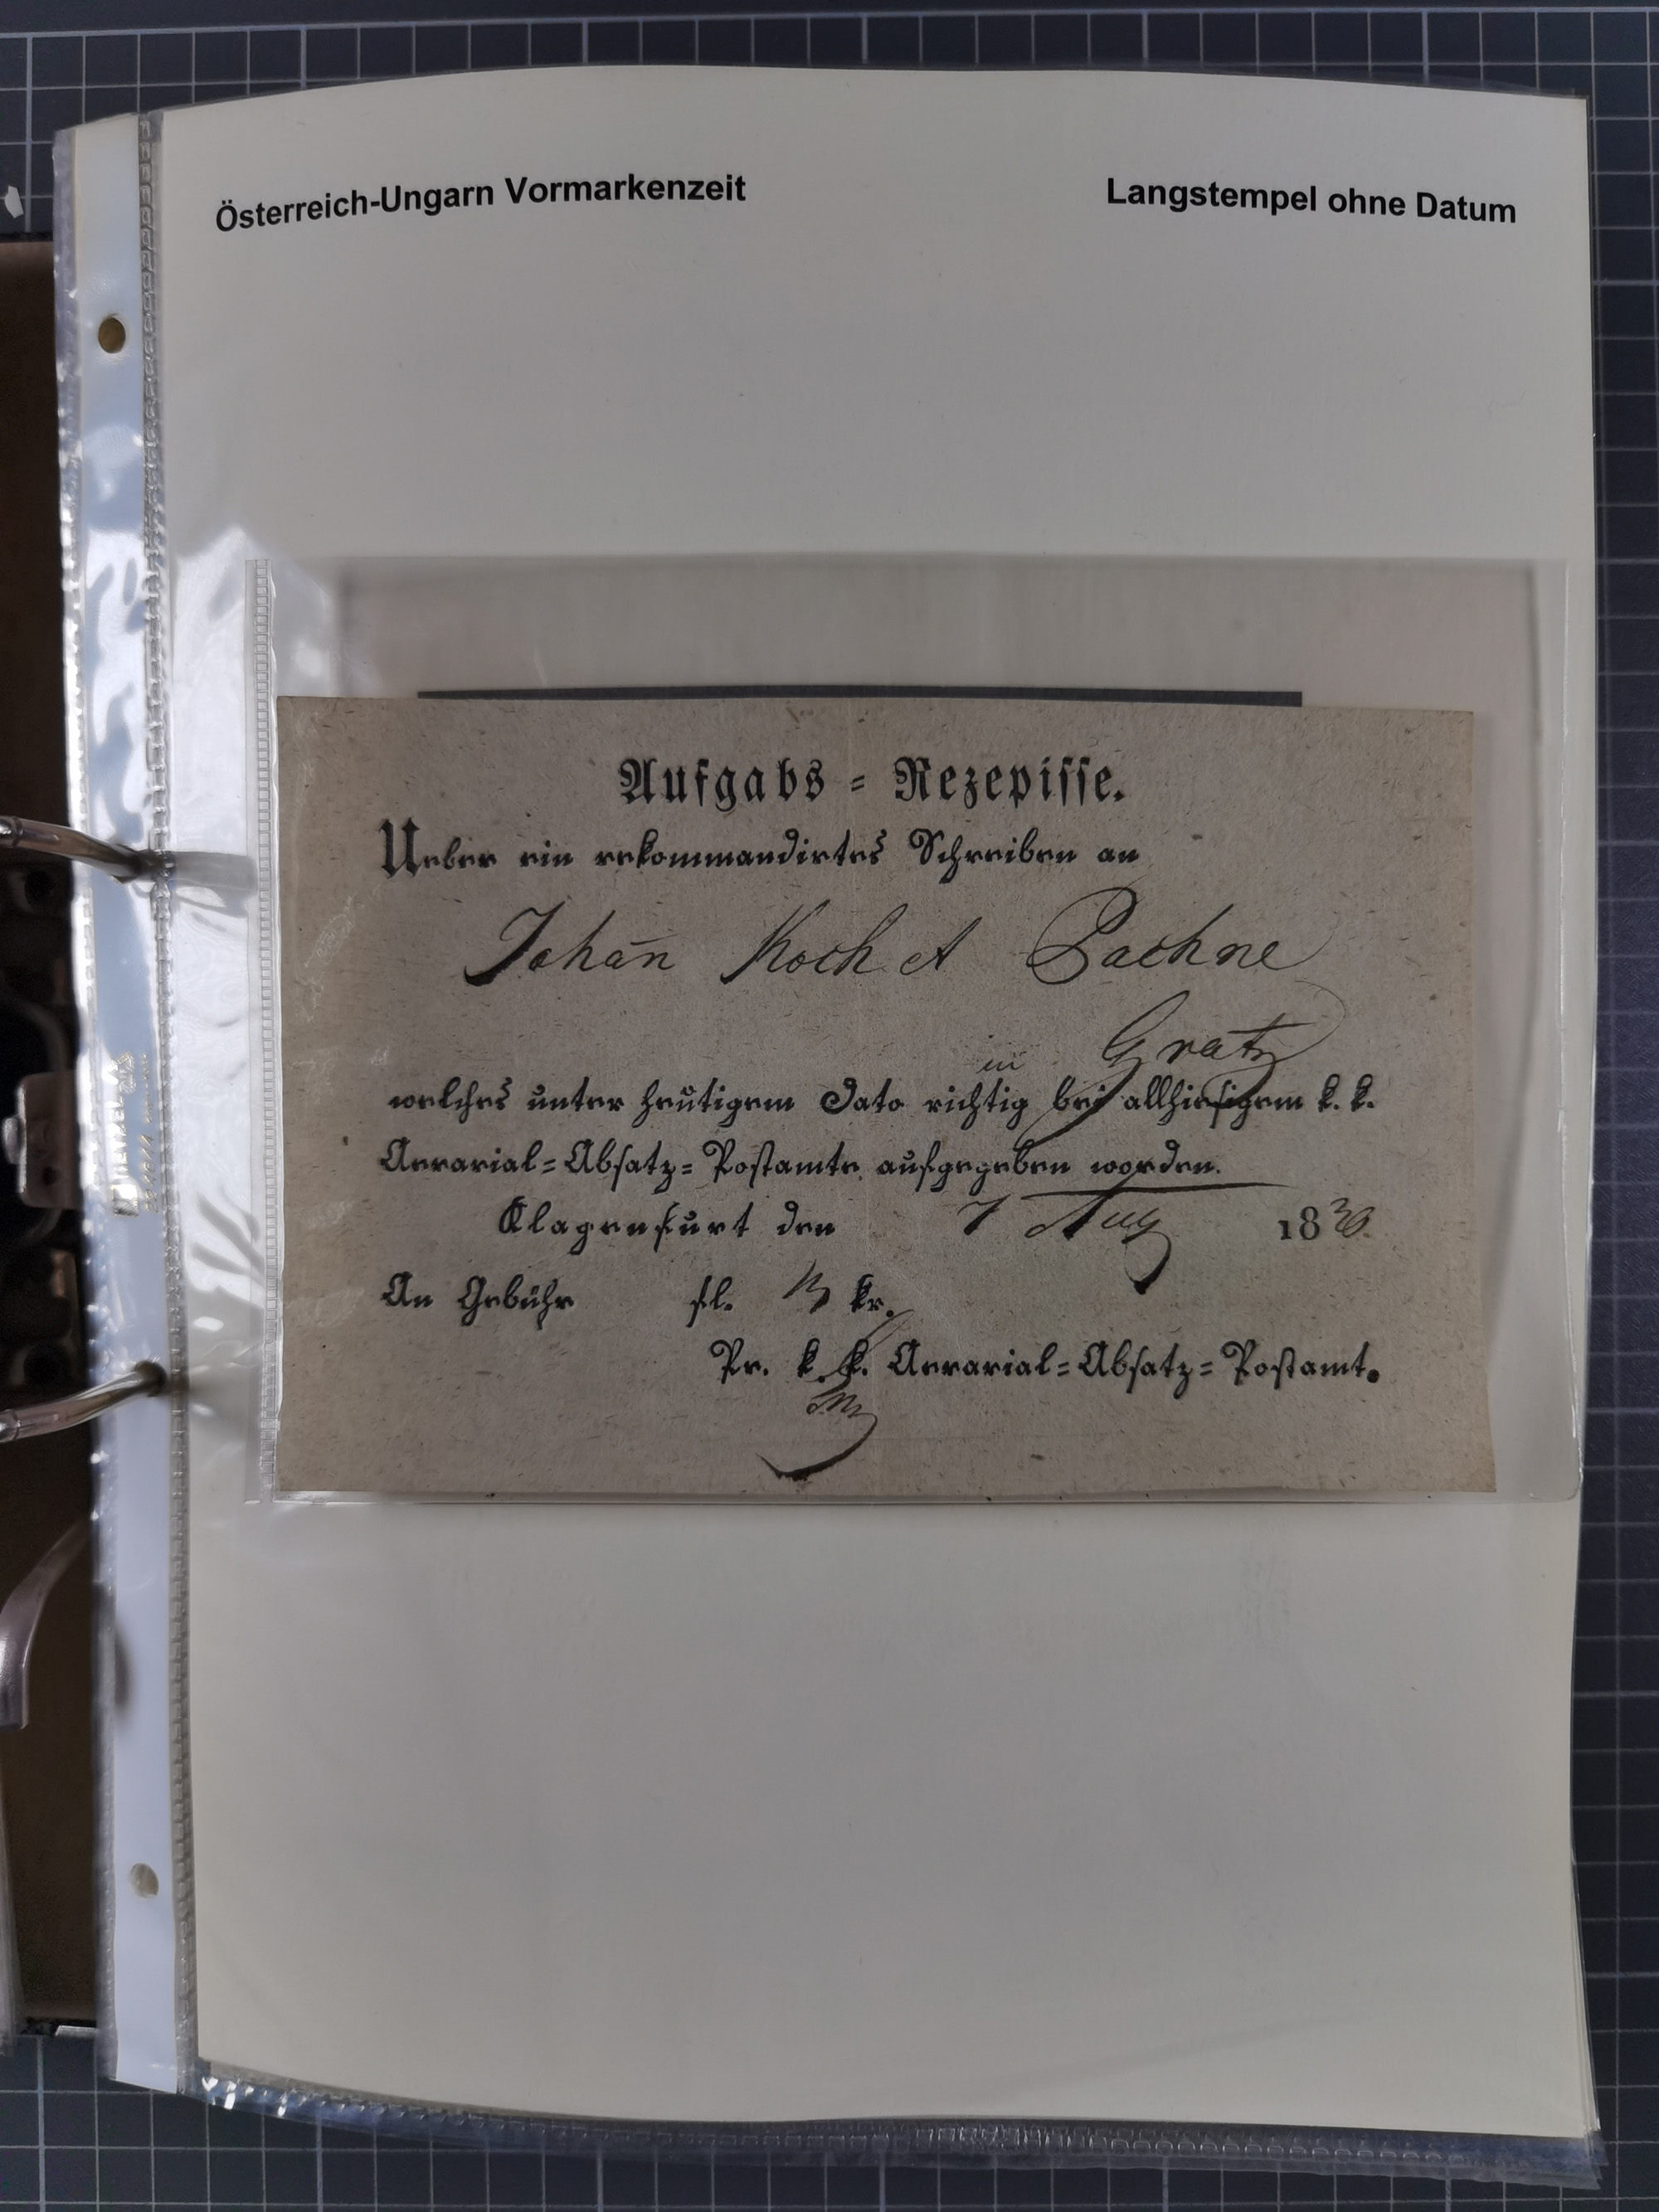 Österreich-Ungarn Vormarkenzeit
Langstempel ohne Datum
Aufgabs = Rezepisse.
Ueber ein rekommandirtes Schreiben an
Johan̄ Koch et Pachne
in Gratz
welches unter heutigem Dato richtig bei allhiesigem k. k.
Aerarial=Absatz=Postamte aufgegeben worden.
Klagenfurt den 7 Aug 1830.
An Gebühr fl. kr.
Pr. k. k. Aerarial=Absatz=Postamt.